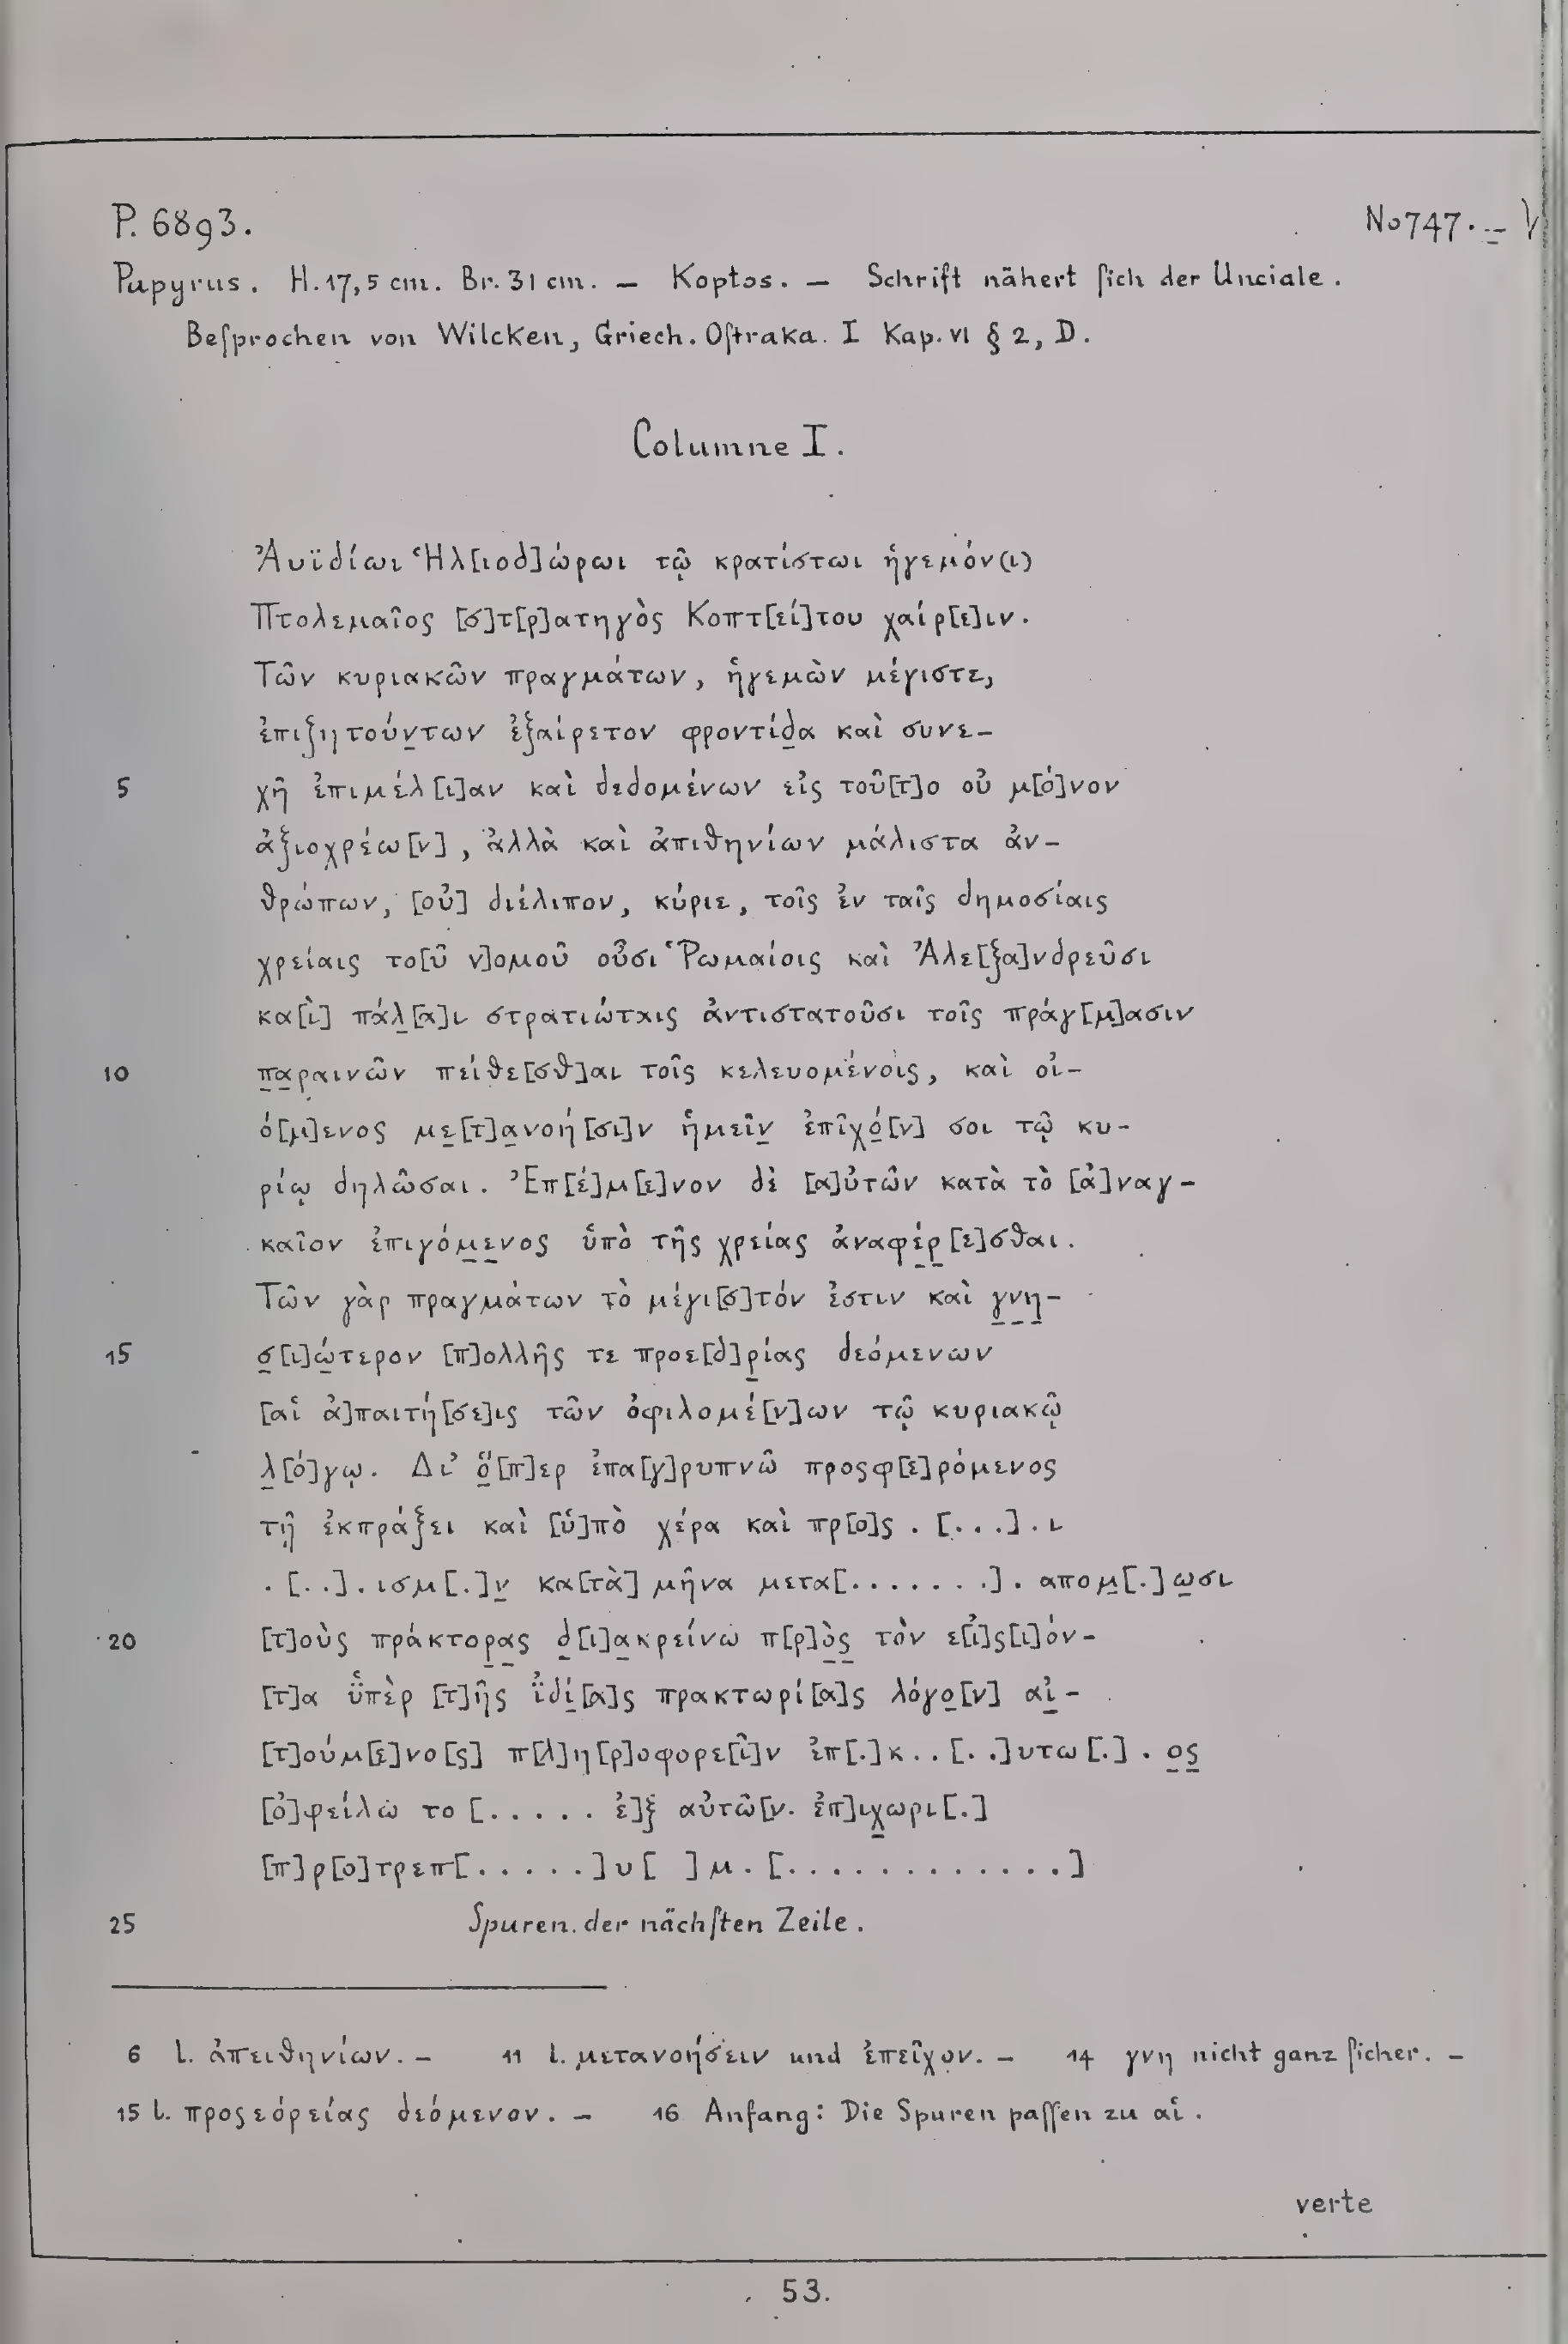 P. 6893. No 747. – V
Papyrus. H. 17,5 cm. Br. 31 cm. – Koptos. – Schrift nähert ſich der Unciale.
Beſprochen von Wilcken, Griech. Oſtraka. I Kap. VI § 2, D.
Columne I.
Ἀυϊδίωι Ἡλ[ιοδ]ώρωι τῷ κρατίστωι ἡγεμόν(ι)
Πτολεμαῖος [σ]τ[ρ]ατηγὸς Κοπτ[εί]του χαίρ[ε]ιν.
Τῶν κυριακῶν πραγμάτων, ἡγεμὼν μέγιστε,
ἐπιζητούν̲των ἐξαίρετον φροντίδ̲α καὶ συνε-
5 χῆ ἐπιμέλ[ι]αν καὶ δεδομένων εἰς τοῦ[τ]ο οὐ μ[ό]νον
ἀξιοχρέω[ν], ἀλλὰ καὶ ἀπιθηνίων μάλιστα ἀν-
θρώπων, [οὐ] διέλιπον, κύριε, τοῖς ἐν ταῖς δημοσίαις
χρείαις το[ῦ ν]ομοῦ οὖσι Ῥωμαίοις καὶ Ἀλε[ξα]νδρεῦσι
κα[ὶ] πάλ̲[α]ι στρατιώταις ἀντιστατοῦσι τοῖς πράγ[μ]ασιν
10 π̲α̲ραινῶν πείθε[σθ]αι τοῖς κελευομένοις, καὶ οἰ-
ό[μ]ενος με̲[τ]α̲νοή[σι]ν ἡμεῖν̲ ἐπῖχό̲[ν] σοι τῷ κυ-
ρίῳ δηλῶσαι. Ἐπ[έ]μ[ε]νον δὲ [α]ὐτῶν κατὰ τὸ [ἀ]ναγ-
καῖον ἐπιγόμ̲ε̲νος ὑπὸ τῆς χρείας ἀναφέ̲ρ̲[ε]σθαι.
Τῶν γὰρ πραγμάτων τὸ μέγι[σ]τόν ἐστιν καὶ γ̲ν̲η̲-
15 σ̲[ι]ώ̲τερον [π]ολλῆς τε προε[δ]ρ̲ίας δεόμενων
[αἱ ἀ]παιτή[σε]ις τῶν ὀφιλομέ[ν]ων τῷ κυριακῷ
λ̲[ό]γῳ. Δι’ ὅ̲[π]ερ ἐπα[γ]ρυπνῶ προςφ[ε]ρόμενος
τῇ ἐκπράξει καὶ [ὑ]πὸ χέρα καὶ πρ[ο]ς . [...] . ι
. [..] . ισμ[.]ν̲ κα[τὰ] μῆνα μετα[.......] . απομ̲[.]ω̲σι
20 [τ]οὺς πράκτορ̲α̲ς δ̲[ι]α̲κρείνω π[ρ]ὸ̲ς̲ τὸν ε[ἰ]ς[ι]όν-
[τ]α ὑ̈πὲρ [τ]ῆς ἰ̈δί̲[α]ς πρακτωρί[α]ς λόγο̲[ν] αἰ̲-
[τ]ούμ[ε]νο[ς] π[λ]η[ρ]οφορε[ῖ]ν ἐπ[.]κ..[..]υτω[.] . ο̲ς̲
[ὀ]φείλω το [..... ἐ]ξ αὐτῶ[ν. ἐπ]ιχ̲ωρι[.]
[π]ρ[ο]τρεπ[.....]υ[ ]μ. [............]
25 Spuren der nächſten Zeile.
6 l. ἀπειθηνίων. – 11 l. μετανοήσειν und ἐπεῖχον. – 14 γνη nicht ganz ſicher. –
15 l. προςεδρείας δεόμενον. – 16 Anfang: Die Spuren paſſen zu αἱ.
verte
53.